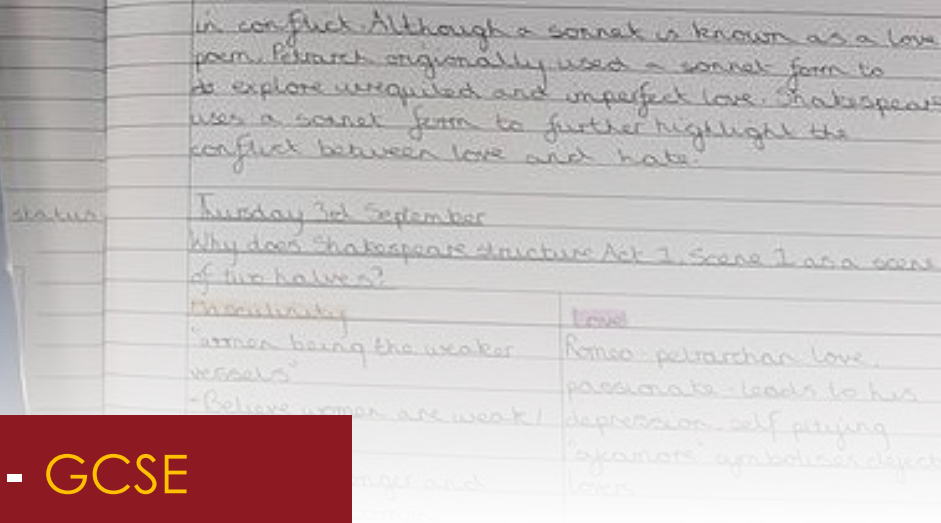 in conflict. Although a sonnet is known as a love
poem, Petrarch origionally used a sonnet form to
to explore unrequited and imperfect love. Shakespeare
uses a sonnet form to further highlight the
conflict between love and hate.
status
Thursday 3rd September
Why does Shakespeare structure Act 1, Scene 1 as a scene
of two halves?
Masculinity
"women being the weaker
vessels"
-Believe women are weak/
Love
Romeo - petrarchan love,
passionate - leads to his
depression, self pitying
"sycamore" symbolises deject
lovers
- GCSE